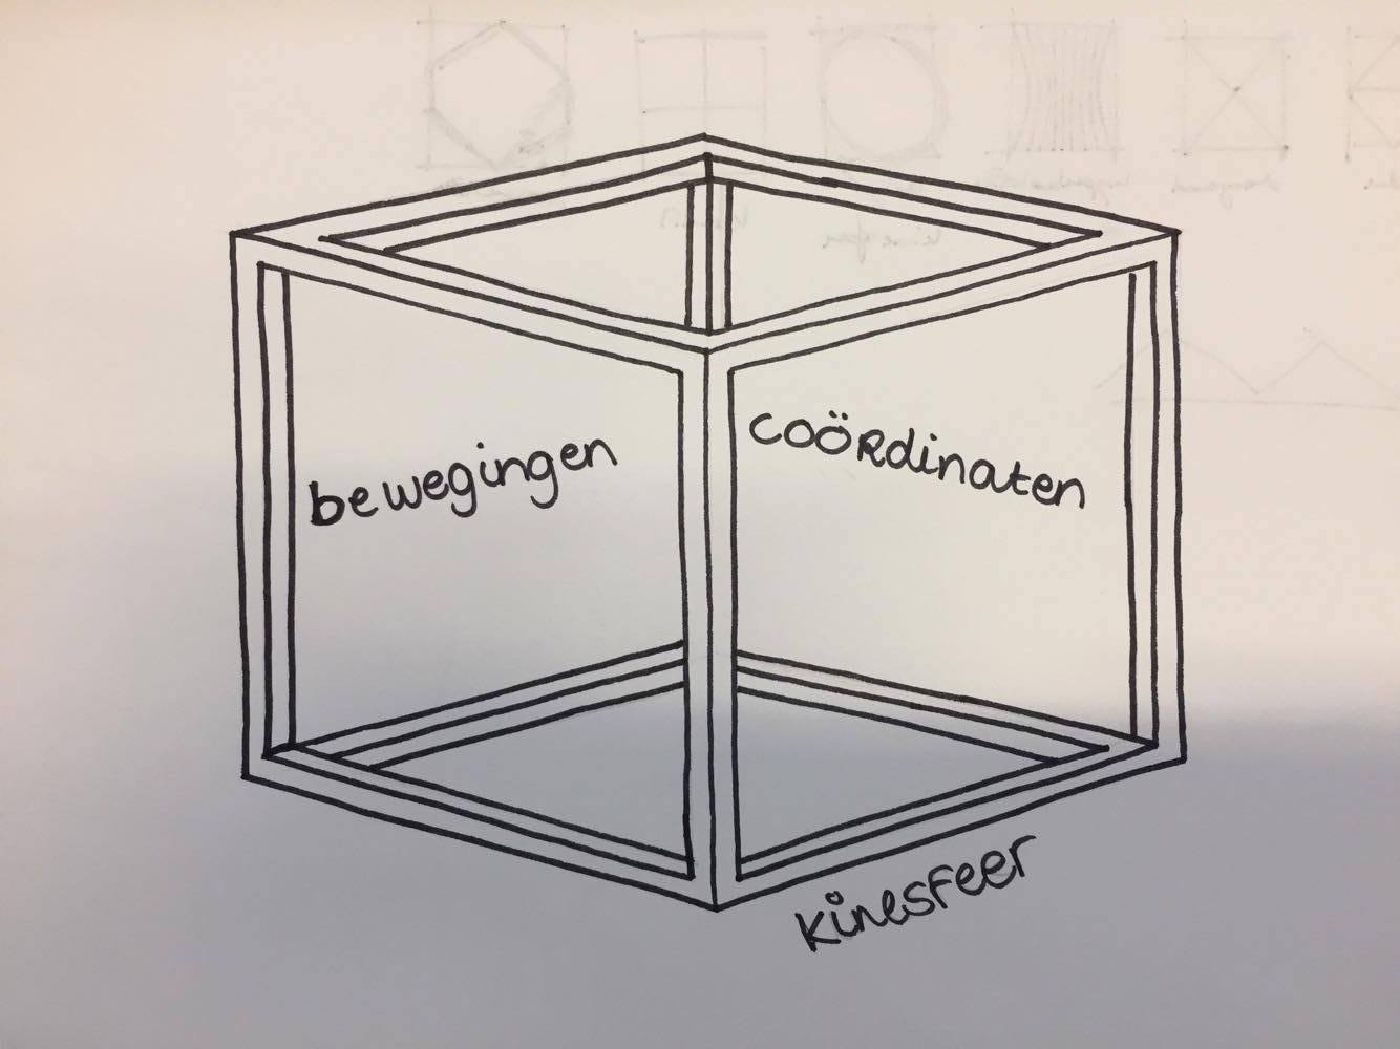 bewegingen
coördinaten
kinesfeer